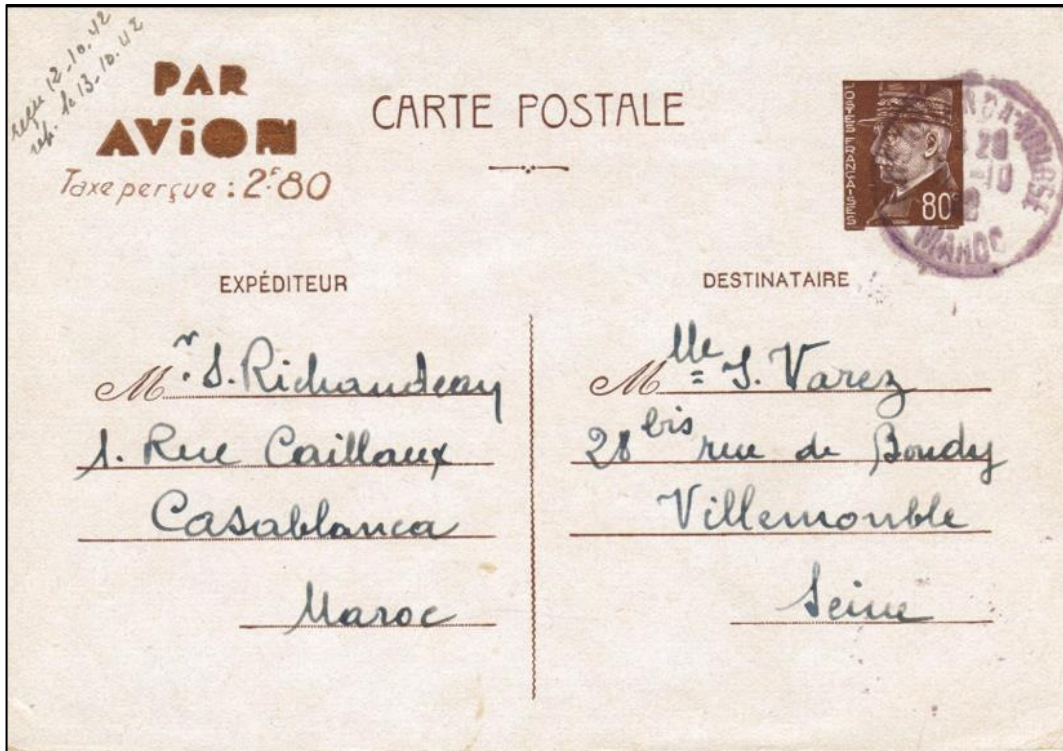 reçu 12-10.42
rép. le 13-10.42
PAR
AVION
Taxe perçue : 2F80
CARTE POSTALE
POSTES FRANÇAISES
80c
MAROC
EXPÉDITEUR
Mr. S. Richaudeau
1. Rue Caillaux
Casablanca
Maroc
DESTINATAIRE
Mlle S. Varez
28 bis rue de Bondy
Villemomble
Seine